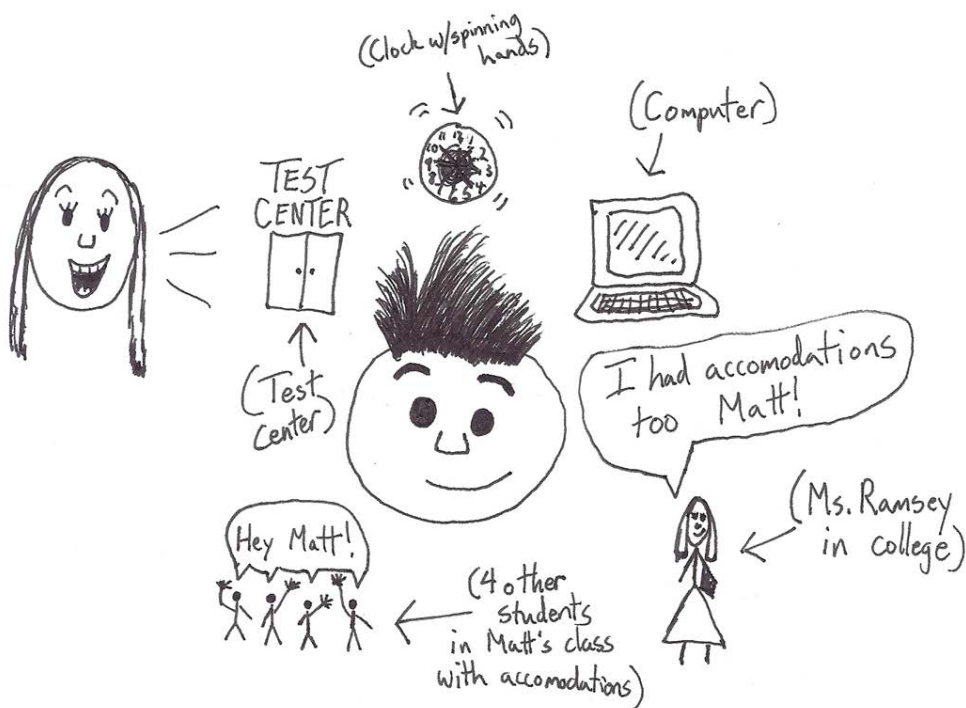 (Clock w/spinning
hands)
11 12 1
10 2
9 3
8 4
7 6 5
(Computer)
TEST
CENTER
(Test
Center)
I had accomodations
too Matt!
(Ms. Ramsey
in college)
Hey Matt!
(4 other
students
in Matt's class
with accomodations)